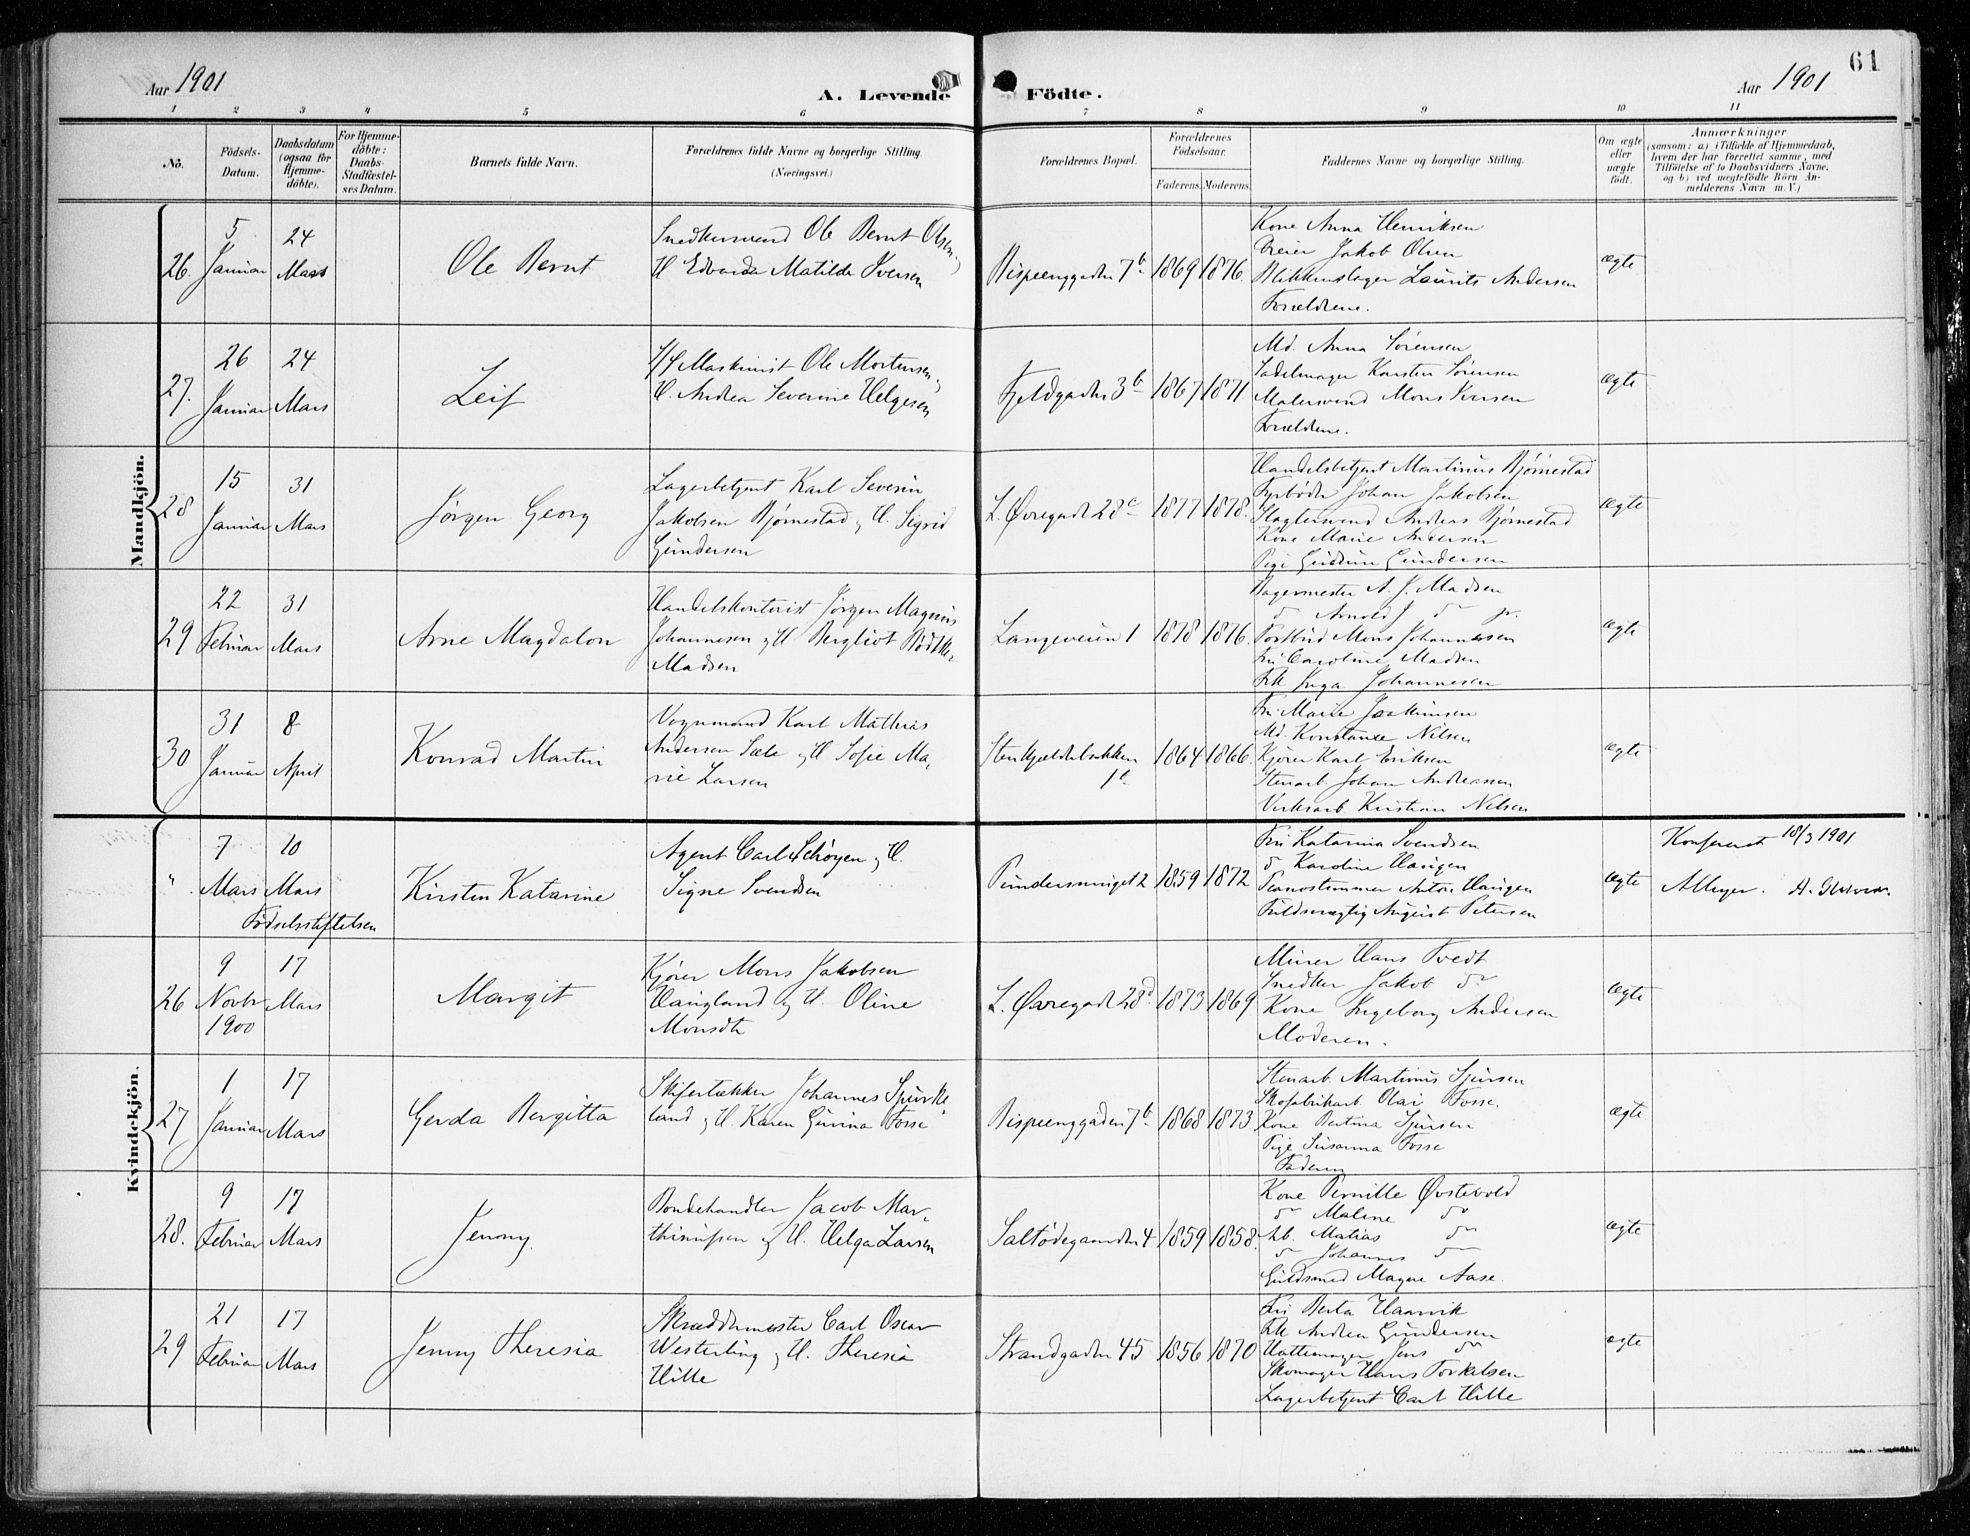 61
Aar 1901
A. Levende Födte.
Aar 1901
1 2 3 4 5 6 7 8 9 10 11
No.
Födsels-
Datum.
Daabsdatum
(ogsaa for
Hjemme-
döbte).
For Hjemme-
döbte:
Daabs-
Stadfæstel-
ses Datum.
Barnets fulde Navn.
Forældrenes fulde Navne og borgerlige Stilling.
(Næringsvei.)
Forældrenes Bopæl.
Forældrenes
Födselsaar.
Faderens. Moderens.
Faddernes Navne og borgerlige Stilling.
Om ægte
eller
uægte
födt.
Anmærkninger
(saasom: a) i Tilfælde af Hjemmedaab,
hvem der har forrettet samme, med
Tilföielse af to Daabsvidners Navne.
og b) ved uægtefödte Börn An-
melderens Navn m. V.)
Mandkjön.
26.
5
Januar
24
Mars
Ole Bernt
Snedkersvend Ole Bernt Olsen,
H. Edvarda Matilde Iversen
Bispeenggaden 7b
1869
1876.
Kone Anna Henriksen
Jakob Olsen
Blikkenslager Laurits Andersen
Forældrene.
ægte
27.
26
Januar
24
Mars
Leif
Maskinist Ole Mortensen,
H. Andrea Severine Helgesen
Fjeldgaden 3b
1867
1871
Md. Anna Sörensen
Sadelmager Karsten Sörensen
Malersvend Mons Iversen
Forældrene.
ægte
28
15
Januar
31
Mars
Jörgen Georg
Lagerbetjent Karl Severin
Jakobsen Bjørnestad, H. Sigrid
Gundersen
L. Øvregade 28c
1877
1878.
Handelsbetjent Martinus Bjørnestad
Fyrböder Johan Jakobsen
Slagtersvend Andreas Bjørnestad
Kone Marie Andersen
Pige Gudrun Gundersen
ægte
29
22
Februar
31
Mars
Arne Magdalon
Handelskontorist Jörgen Magnus
Johannesen og H. Bergliot Bödtker
Madsen
Langeveien 1
1878
1876.
Bagermester A. J. Madsen
do Arnold J. do jr.
Postbud Mons Johannesen
Fru Caroline Madsen
Frk Inga Johannesen
ægte
30
31
Januar
8
April
Konrad Martin
Vognmand Karl Mathias
Andersen Sæle og H. Sofie Ma-
rie Larsen
Stenkjeldebakken
1
1864
1866.
Fru Marie Joakimsen
Md. Konstanse Nilsen
Kjører Karl Eriksen
Stenarb. Johan Andreassen
Verksarb. Kristian Nilsen
ægte
Kvindekjön.
"
7
Mars
10
Mars
Födselsstiftelsen
Kirsten Katarine
Agent Carl Schöyen, H.
Signe Svendsen
Pundersmuget 2
1859
1872
Fru Katarina Svendsen
do Karoline Haugen
Pianostemmer Anton Haugen
Fuldmægtig August Petersen
ægte
Konfereret 18/3 1901
A Meyer.
26
9
Novbr
1900
17
Mars
Margit
Kjörer Mons Jakobsen
Haugland og H. Oline
Monsdtr
L. Øvregade 28d.
1873
1869
Minør Hans Tvedt
Snedker Jakob do
Kone Ingeborg Andersen
Moderen.
ægte
27
1
Januar
17
Mars
Gerda Bergitta
Skifertækker Johannes Spurke-
land, H. Karen Gurina Fosse
Bispeenggaden 7b
1868
1873
Stenarb. Martinus Sjursen
Skofabrikarb. Olai Fosse.
Kone Bertina Sjursen
Pige Susanna Fosse
Faderen
ægte
28.
9
Februar
17
Mars
Jenny.
Bondehandler Jacob Mar-
thinussen og H. Helga Larsen
Saltödegaarden 4
1859
1858.
Kone Pernille Øvstevold
do Maline do
Arb. Matias do
do Johannes do
Guldsmed Magne Aase.
ægte
29
21
Februar
17
Mars
Jenny Theresia
Skræddermester Carl Oscar
Westerling, H. Theresia
Hille
Strandgaden 45
1856
1870
Fru Berta Haarvik
Frk Andrea Gundersen
Hattemager Jens do
Skomager Hans Torkelsen
Lagerbetjent Carl Hille
ægte